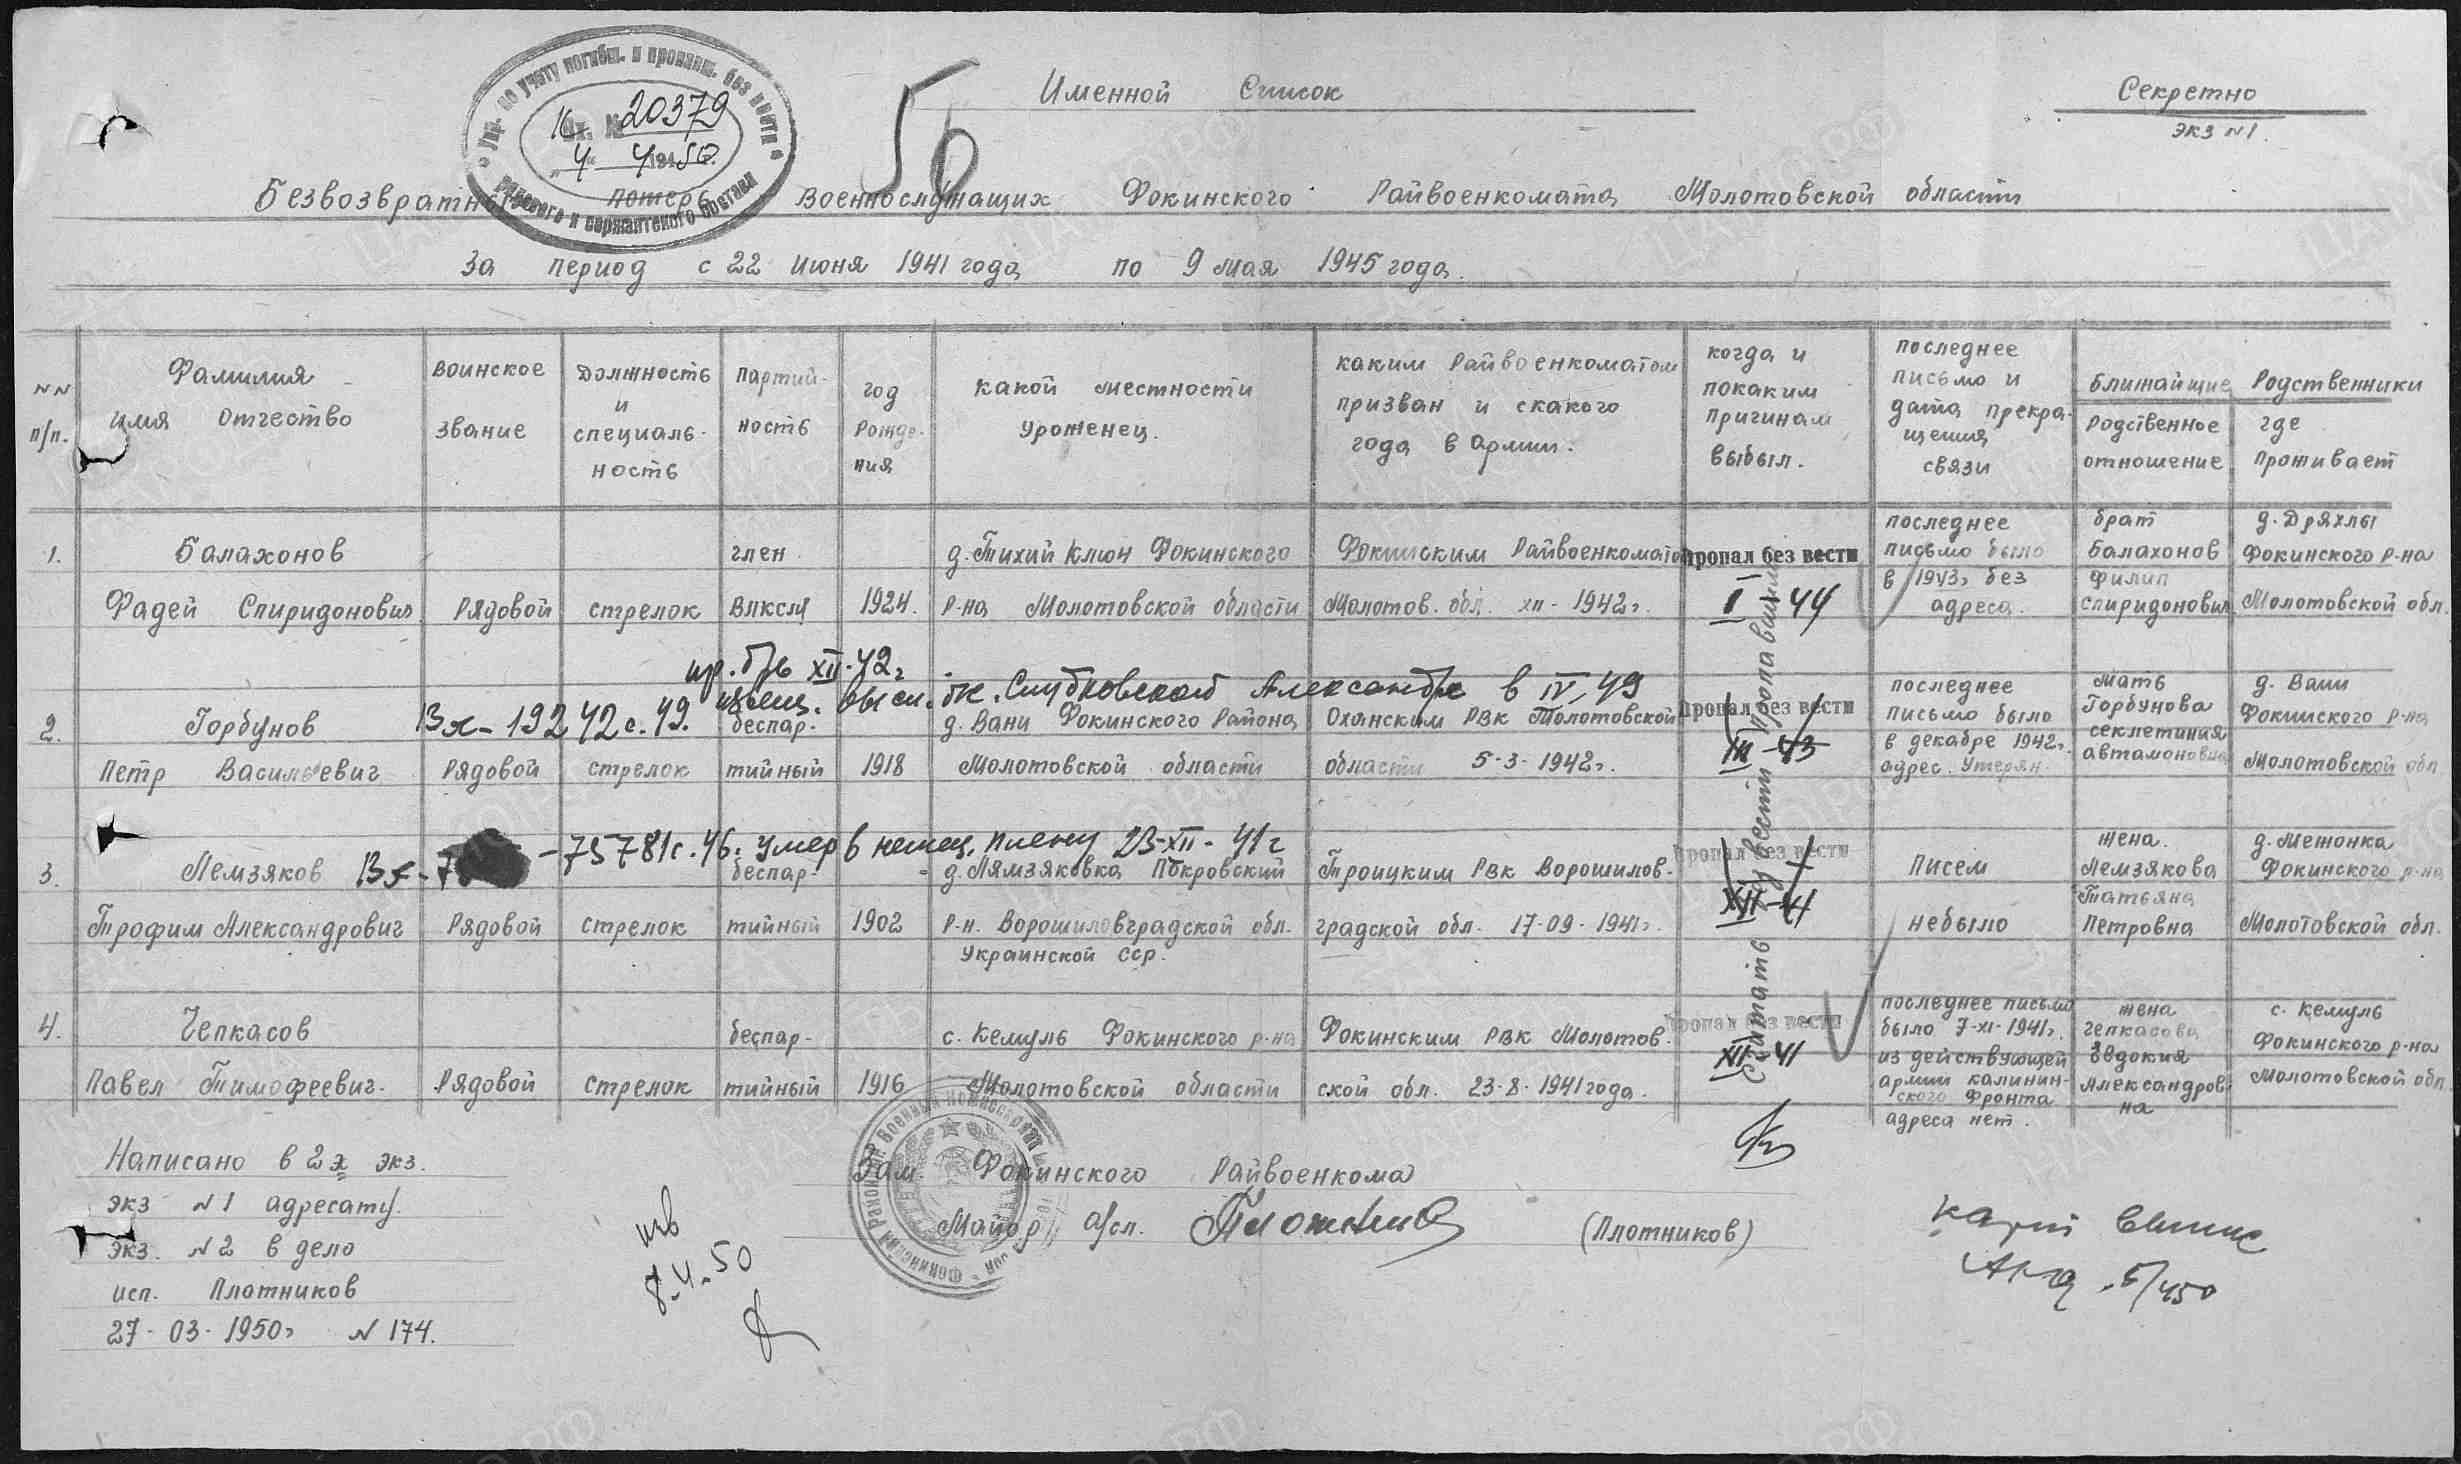 Упр. по учету погибш. и пропавш. без вести
Вх. № 20379
"4" 4 1950.
рядового и сержантского состава
50
Именной Список
Секретно
экз №1.
Безвозвратных потерь военнослужащих Фокинского Райвоенкомата Молотовской области
За период с 22 июня 1941 года по 9 мая 1945 года.
№№ п/п.
Фамилия имя отчество
Воинское звание
Должность и специаль-ность
Партий-ность
год рожде-ния
какой местности уроженец.
каким Райвоенкоматом призван и с какого года в армии.
когда и по каким причинам выбыл.
последнее письмо и дата прекра-щения связи
Ближайшие Родственники
Родственное отношение
где проживает
1. Балахонов член д. Тихий Ключ Фокинского Фокинским Райвоенкоматом Пропал без вести
Фадей Спиридонович рядовой стрелок ВЛКСМ 1924. р-на Молотовской области Молотов. обл. XII - 1942г. I - 44
последнее письмо было в 1943г без адреса.
брат Балахонов Филип Спиридонович
д. Дряхлы Фокинского р-на Молотовской обл.
пр. б/в XII-42г
извещ. высл. Александре в IV.49
2. Горбунов Вх-19242с.49. беспар- д. Вани Фокинского Района Оханским РВК Молотовской Пропал без вести
Петр Васильевич Рядовой стрелок тийный 1918 Молотовской области области 5-3-1942г. III - 43
последнее письмо было в декабре 1942г. адрес. утерян.
мать Горбунова секлетиния автамоновна
д. Вани Фокинского р-на Молотовской обл
-75781с.46. умер в немец. плену 23-XII-41г
3. Лемзяков беспар- д. Лямзяковка Покровский Троицким РВК Ворошилов- Пропал без вести
Трофим Александрович Рядовой стрелок тийный 1902 р-н. Ворошиловградской обл. градской обл. 17-09-1941г. XII-41
Украинской ССР.
писем не было
жена. Лемзякова Татьяна Петровна
д. Метонка Фокинского р-на Молотовской обл.
4. Чепкасов беспар- с. Кемуль Фокинского р-на Фокинским РВК Молотов. Пропал без вести
Павел Тимофеевич. Рядовой стрелок тийный 1916 Молотовской области ской обл. 23-8-1941 года. XII-41
последнее письмо было 7-XI-1941г. из действующей армии калинин-ского фронта адреса нет.
жена Чепкасова Евдокия Александров-на
с. Кемуль Фокинского р-на Молотовской обл.
Считать без вести пропавшими
Написано в 2х экз.
экз №1 адресату.
экз. №2 в дело
исп. Плотников
27-03-1950г №174.
8.4.50
Зам. Фокинского Райвоенкома
Майор а/сл. (Плотников)